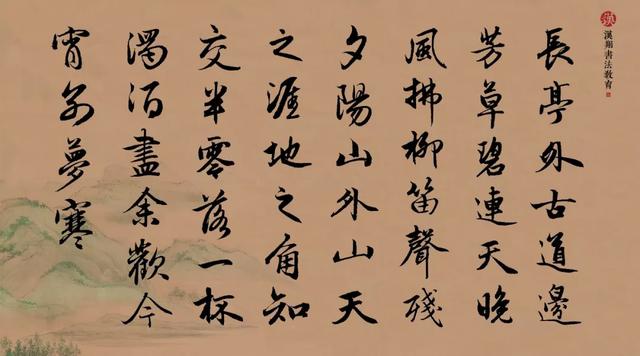 漢
漢翔書法教育
長亭外古道邊
芳草碧連天晚
風拂柳笛聲殘
夕陽山外山天
之涯地之角知
交半零落一杯
濁酒盡余歡今
宵別夢寒